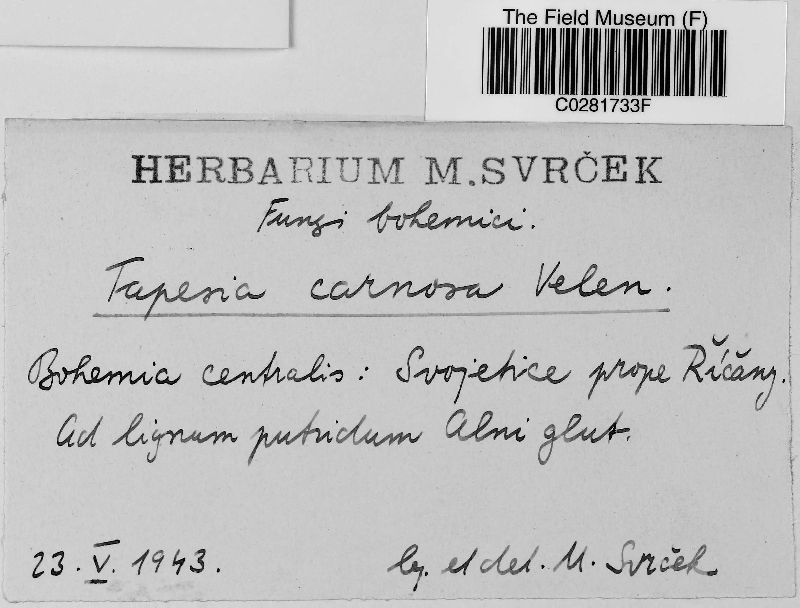 The Field Museum (F)
C0281733F
HERBARIUM M. SVRČEK
Fungi bohemici.
Tapesia carnosa Velen.
Bohemia centralis: Svojetice prope Říčany.
Ad lignum putridum Alni glut.
23. V. 1943.
leg. et det. M. Svrček